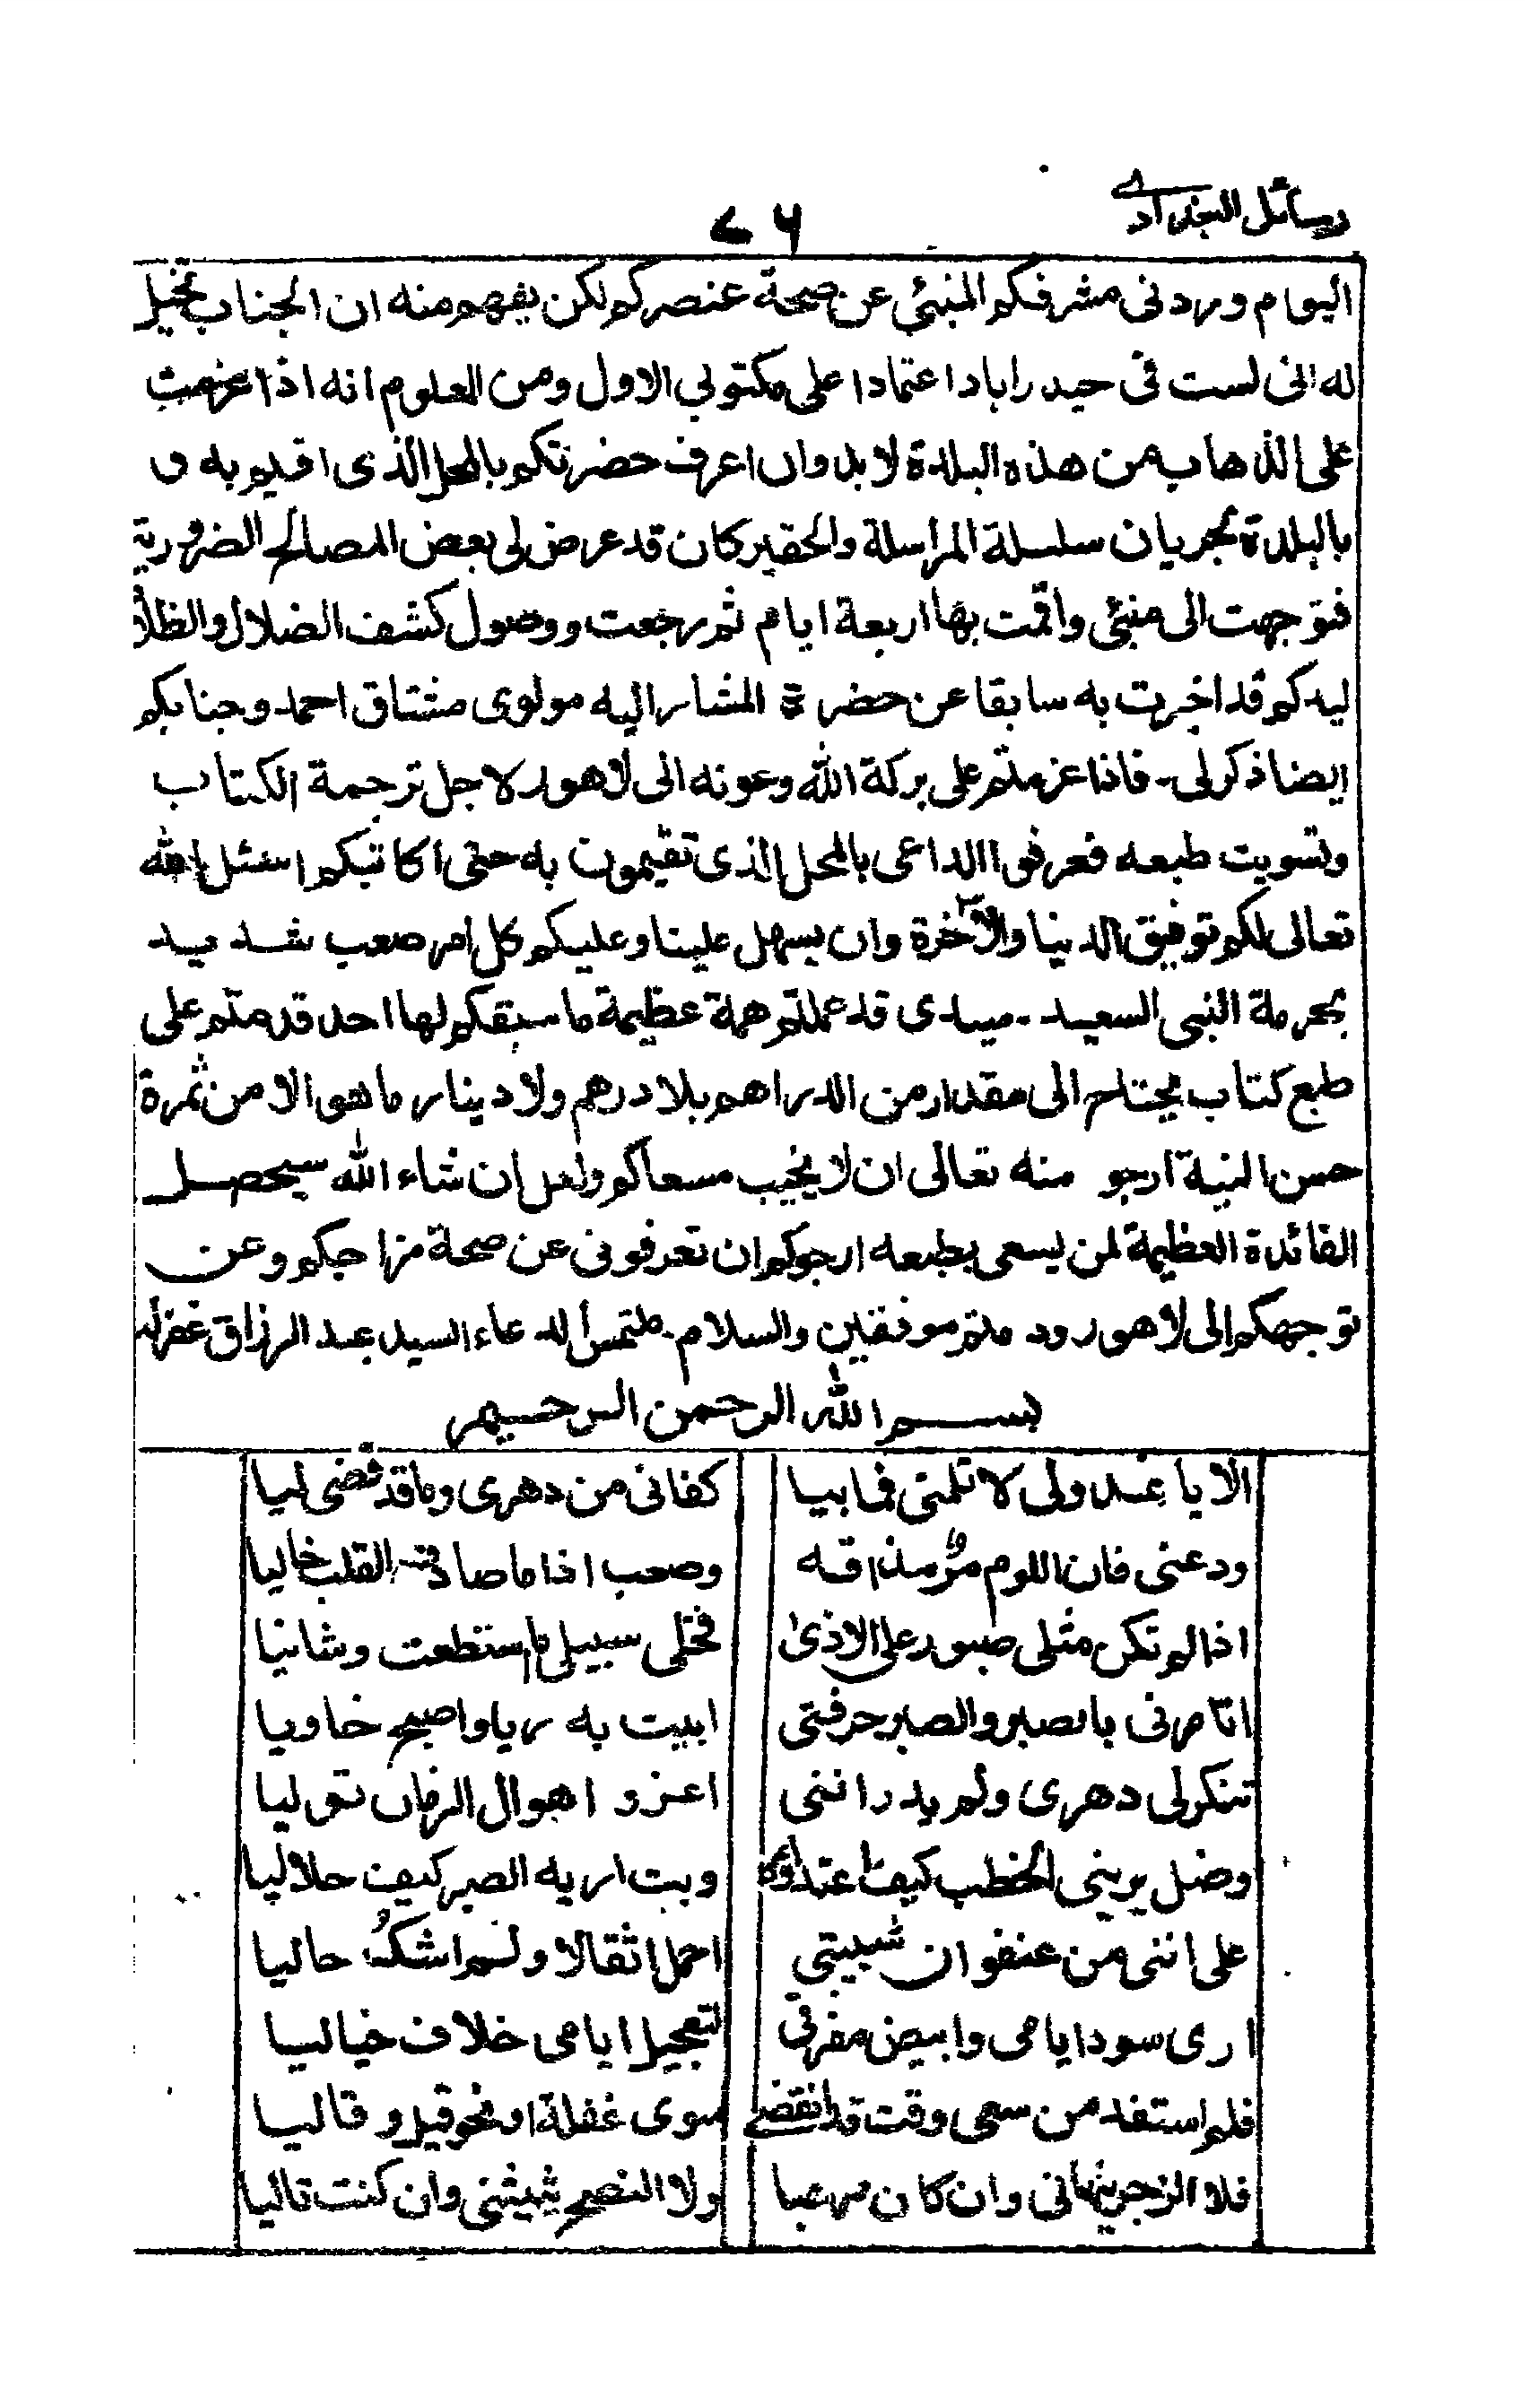 رسائل البغدادي
٧٦
اليوم وردنى مشرفكم المنبئ عن صحة عنصركم لكن يفهم منه ان الجناب تخيل
له انى لست فى حيدراباد اعتمادا على مكتوبي الاول ومن العلوم انه اذا عزمت
على الذهاب من هذه البلدة لا بد وان اعرف حضرتكم بالمحل الذى اقيم به و
بالبلدة لجريان سلسلة المراسلة والحقير كان قد عرض لى بعض المصالح الضرورية
فتوجهت الى منبئى واقمت بها اربعة ايام ثم رجعت ووصول كشف الضلال والظلا
ليدكم قد اخبرت به سابقا عن حضرة المشار اليه مولوى مشتاق احمد وجنابكم
ايضا ذكر لى - فاذا عزمتم على بركة الله وعونه الى لاهور لاجل ترجمة الكتاب
وتسويت طبعه فعرفوا الداعى بالمحل الذى تقيمون به حتى اكاتبكم اسئل الله
تعالى لكم توفيق الدنيا والآخرة وان يسهل علينا وعليكم كل امر صعب شديد
بحرمة النبى السعيد - سيدى قد عملتم همة عظيمة ما سبقكم لها احد قدمتم على
طبع كتاب يحتاج الى مقدار من الدراهم بلا درهم ولا دينار ما هو الا من ثمرة
حسن النية ارجو منه تعالى ان لا يخيب مسعاكم ولعل ان شاء الله سيحصل
الفائدة العظيمة لمن يسعى بطبعه ارجوكم ان تعرفونى عن صحة مزاجكم وعن
توجهكم الى لاهور ودمتم موفقين والسلام - ملتمس الدعاء السيد عبد الرزاق غفرله
بسم الله الرحمن الرحيم
الا يا عذولى لا تلمنى فما بيا كفانى من دهرى وما قد قضى ليا
ودعنى فان اللوم مرٌّ مذاقه وصعب اذا ما صادف القلب خاليا
اذا لم تكن مثلى صبور على الاذى فخلى سبيلى ما ستطعت وشانيا
اتامرنى بالصبر والصبر حرفتى ابيت به ريا واصبح خاويا
تنكر لى دهرى ولم يدر اننى اعز و اهوال الزمان تو ليا
وضل يرينى الخطب كيف اعتداؤه وبت اريه الصبر كيف حلا ليا
على اننى من عنفوان شبيبتي احمل اثقالا ولم اشكُ حاليا
ارى سود ايامى وابيض مفرقي لتعجيل ايامى خلاف خياليا
فلم استفد من سعى وقت قد انقضے سوى غفلة او نحو قيل و قاليا
فلا الزجر ينهانى وان كان مرعبا ولا النصح يثينى وان كنت تاليا